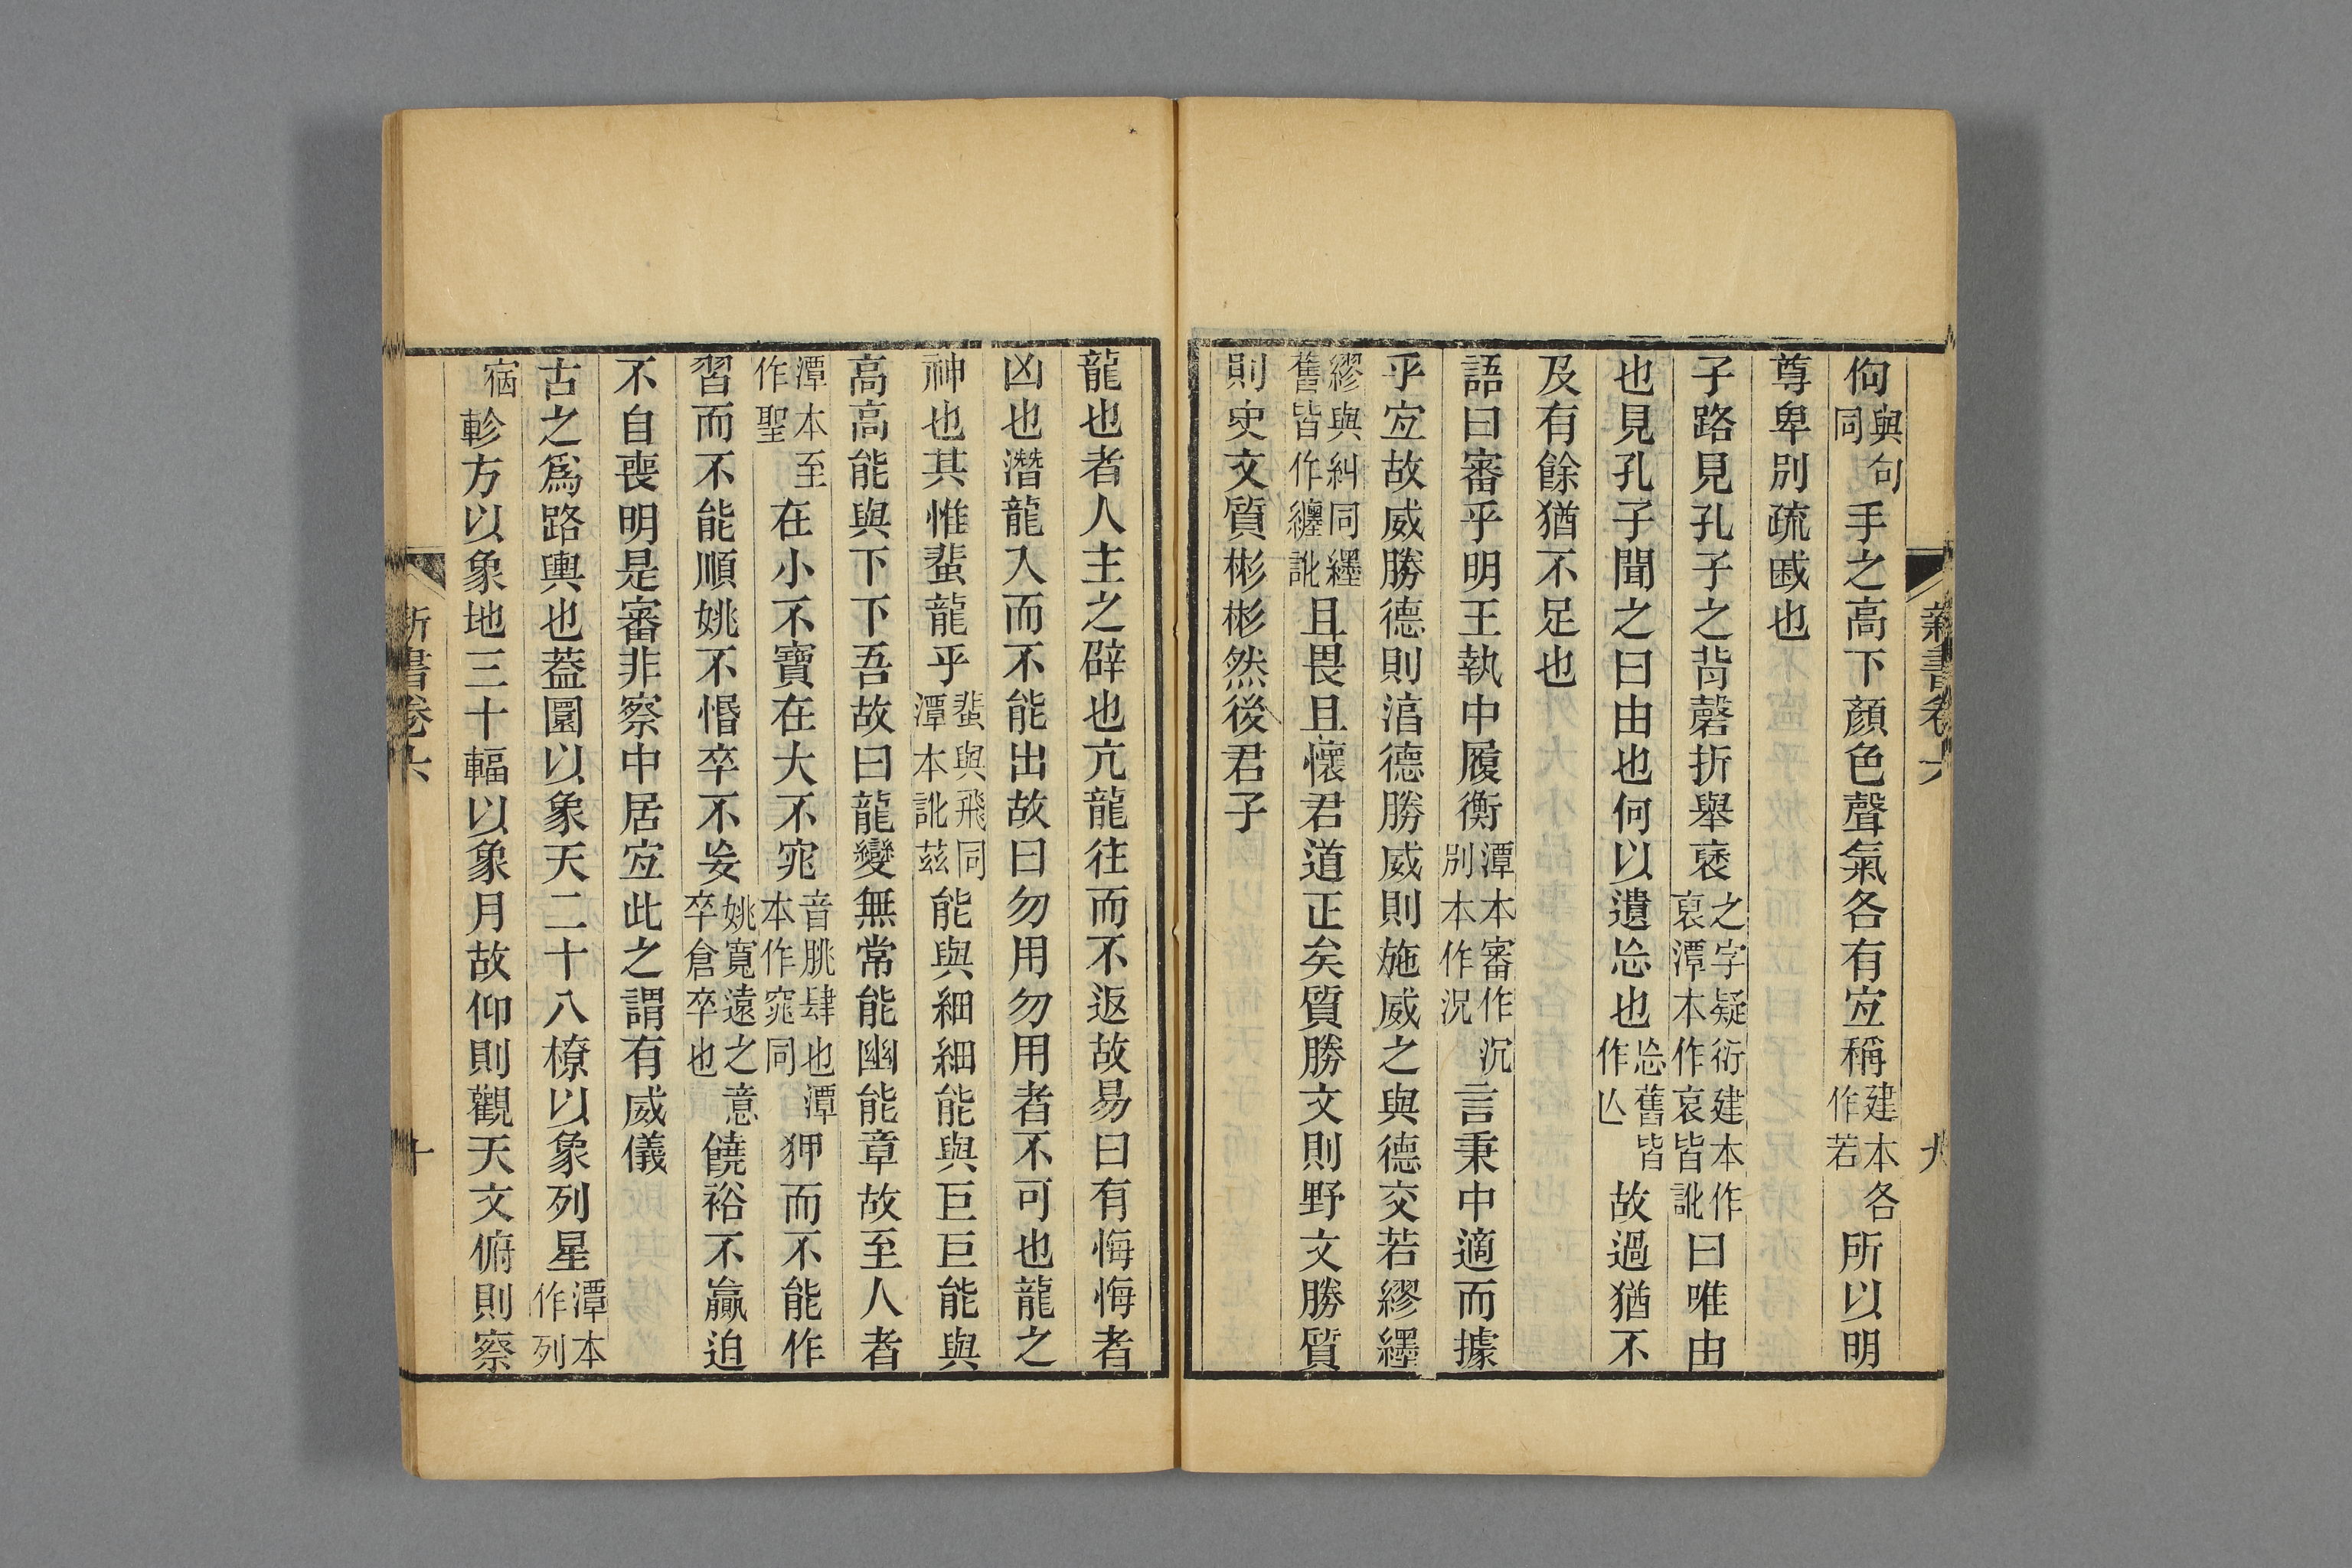 佝與句同手之高下顏色聲氣各有宐稱建本各作若所以明
尊卑別疏戚也
子路見孔子之背磬折舉褎之字疑衍建本作裒潭本作哀皆訛曰唯由
也見孔子聞之曰由也何以遺忩也忩舊皆作亾故過猶不
及有餘猶不足也
語曰審乎明王執中履衡潭本審作沉別本作況言秉中適而據
乎宐故威勝德則湻德勝威則施威之與德交若繆纆
繆與糾同纆舊皆作纏訛且畏且懷君道正矣質勝文則野文勝質
則史文質彬彬然後君子
新書卷六
九
龍也者人主之辟也亢龍往而不返故易曰有悔悔者
凶也潛龍入而不能出故曰勿用勿用者不可也龍之
神也其惟蜚龍乎蜚與飛同潭本訛茲能與細細能與巨巨能與
高高能與下下吾故曰龍變無常能幽能章故至人者
潭本至作聖在小不寶在大不窕音朓肆也潭本作窕同狎而不能作
習而不能順姚不惛卒不妄姚寬遠之意卒倉卒也饒裕不贏迫
不自喪明是審非察中居宐此之謂有威儀
古之爲路輿也葢圜以象天二十八橑以象列星潭本作列
宿軫方以象地三十輻以象月故仰則觀天文俯則察
新書卷六
十